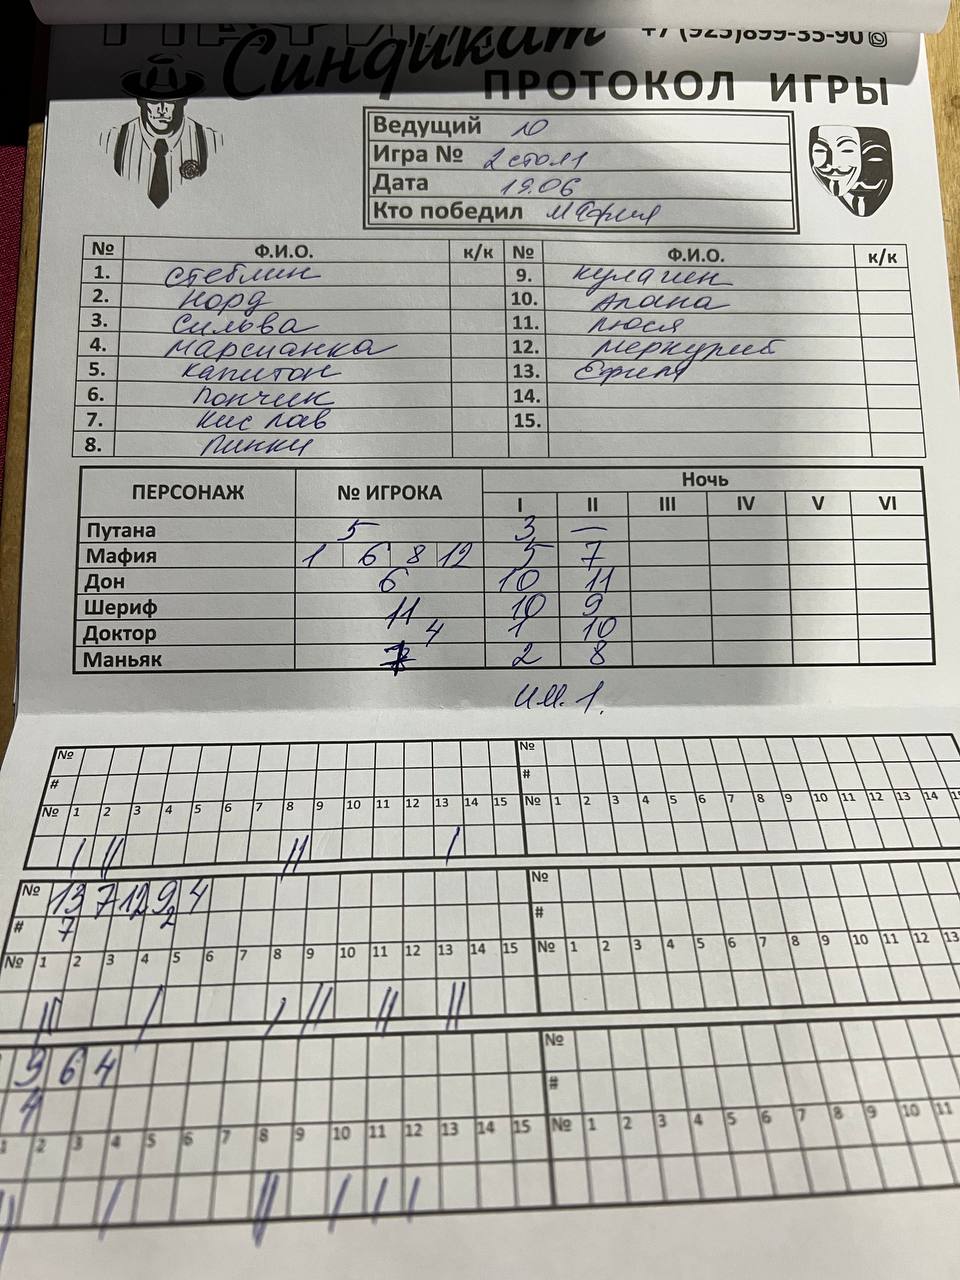 Синдикат +7 (925)899-35-90
ПРОТОКОЛ ИГРЫ
Ведущий 10
Игра № 2 стол 1
Дата 19.06
Кто победил Мафия
№ Ф.И.О. к/к № Ф.И.О. к/к
1. Стеблин 9. Кулагин
2. Норд 10. Алана
3. Сильва 11. Люся
4. Марсианка 12. Меркурий
5. Капитон 13.
6. Пончик 14.
7. Кислав 15.
8. Пинки
ПЕРСОНАЖ № ИГРОКА Ночь
I II III IV V VI
Путана 5 3 —
Мафия 1 6 8 12 5 7
Дон 6 10 11
Шериф 11 10 9
Доктор 4 1 10
Маньяк 2 8
И.М. 1.
№ №
# #
№ 1 2 3 4 5 6 7 8 9 10 11 12 13 14 15 № 1 2 3 4 5 6 7 8 9 10 11 12 13 14 15
/ // // /
№ 13 7 12 9 4 №
# 7 2 #
№ 1 2 3 4 5 6 7 8 9 10 11 12 13 14 15 № 1 2 3 4 5 6 7 8 9 10 11 12 13
/// / / // // //
9 6 4 №
4 #
1 2 3 4 5 6 7 8 9 10 11 12 13 14 15 № 1 2 3 4 5 6 7 8 9 10 11
// / // / / /